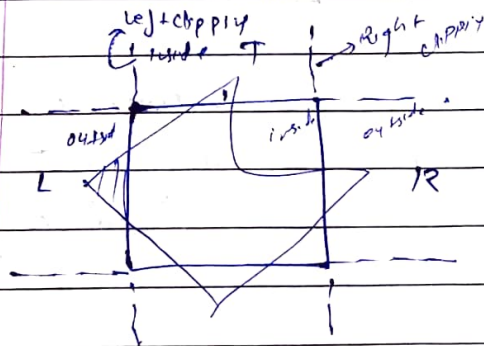 left clippiy
inside T
Right
clippiy
outsd
inside
outside
L
R